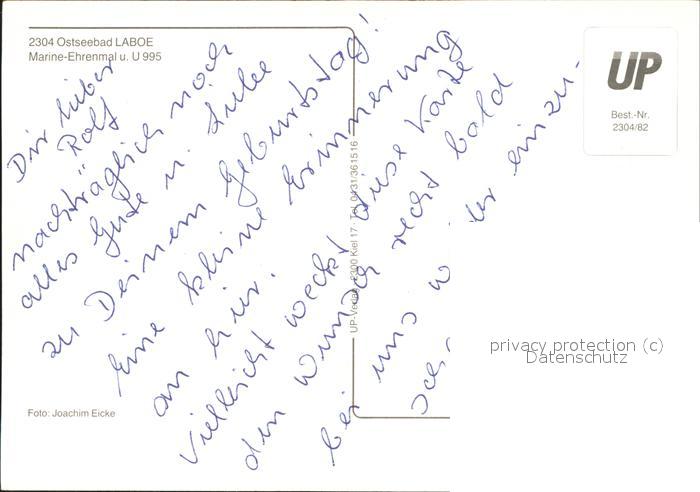 2304 Ostseebad LABOE
Marine-Ehrenmal u. U 995
UP
Best.-Nr.
2304/82
Dir lieber
Rolf
nachträglich noch
alles Gute u. Liebe
zu Deinem Geburtstag!
Eine kleine Erinnerung
an hier.
Vielleicht weckt diese Karte
den Wunsch recht bald
bei uns wieder einzu-
UP-Verlag 2300 Kiel 17 · Tel. 0431/361516
privacy protection (c)
Datenschutz
Foto: Joachim Eicke